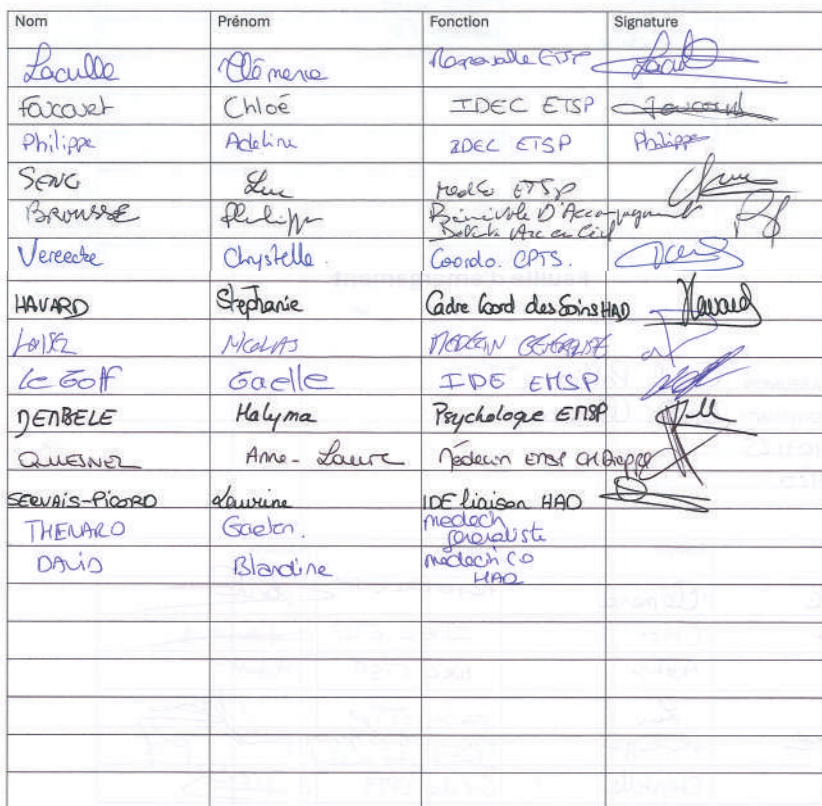 Nom Prénom Fonction Signature
Laculle Clémence Responsable ETSP
Foucovet Chloé IDEC ETSP
Philippe Adeline IDEC ETSP Philippe
SENG Luc ETSP
BROUSSE Philippe Bénévole D'Accompagnement
Arc en Ciel
Vereecke Chrystelle. Coordo. CPTS.
HAVARD Stephanie Cadre Coord des Soins HAD Havard
LOISEL NICOLAS MEDECIN GENERALISTE
Le Goff Gaelle IDE EMSP
DEMBELE Halyma Psychologue EMSP
QUESNEL Anne-Laure Médecin EMSP CH Dieppe
SERVAIS-PICORD Laurine IDE liaison HAD
THENARD Gaetan. medecin
generaliste
DAVID Blandine medecin CO
HAD